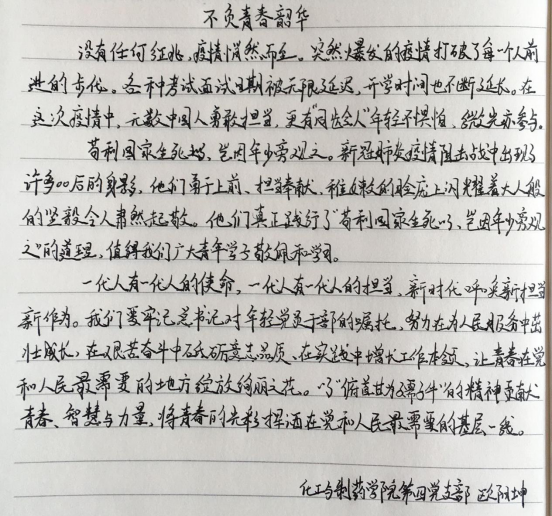 不负青春韶华
没有任何征兆,疫情悄然而至。突然爆发的疫情打破了每个人前
进的步伐。各种考试面试日期被无限延迟,开学时间也不断延长。在
这次疫情中,无数中国人勇敢担当,更有“同龄人”年轻不惧怕、
苟利国家生死以,岂因年少旁观之。新冠肺炎疫情阻击战中出现了
许多00后的身影,他们勇于上前、担当奉献、稚嫩的脸庞上闪耀着大人般
的坚毅令人肃然起敬。他们真正践行了“苟利国家生死以、岂因年少旁观
之”的道理,值得我们广大青年学子敬佩和学习。
一代人有一代人的使命,一代人有一代人的担当,新时代呼唤新担当
新作为。我们要牢记总书记对年轻党员干部的嘱托,努力在为人民服务中茁
壮成长,在艰苦奋斗中砥砺意志品质、在实践中增长工作本领,让青春在党
和人民最需要的地方绽放绚丽之花。以“俯首甘为孺子牛”的精神贡献
青春、智慧与力量,将青春的光彩挥洒在党和人民最需要的基层一线。
化工与制药学院第四党支部 欧阳坤